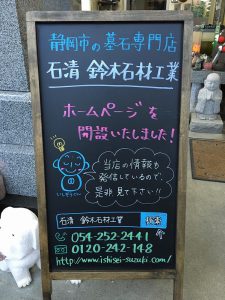 静岡市の墓石専門店
石清 鈴木石材工業
ホームページを
開設いたしました!
当店の情報も
発信しているので、
是非見て下さい!!
いしぞうくん
石清 鈴木石材工業 検索
054-252-2441
0120-242-148
http://www.ishisei-suzuki.com/